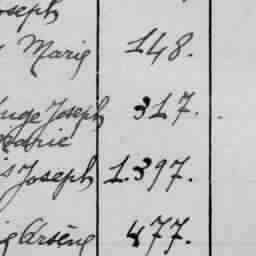 Joseph
Marie 148.
Joseph 317.
Marie
Joseph 1.397.
Arsène 477.